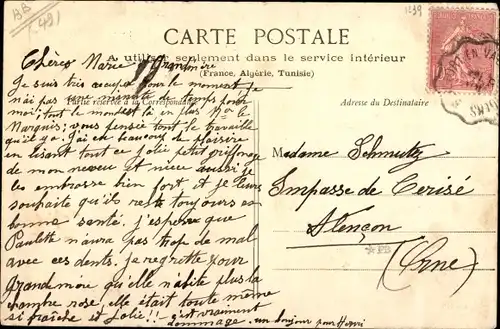 BB
491
1239
CARTE POSTALE
A utiliser seulement dans le service intérieur
(France, Algérie, Tunisie)
Partie réservée à la Correspondance
Adresse du Destinataire
Chères Marie Grandmère
Je suis très occupé pour le moment
je n'ai pas une minute temps pour
moi; tout le monde est là en plus Mr le
Marquis; vous pensez tout le travaille
qu'il y a. J'ai eu beaucoup de plaisire
en lisant tout ce jolie petit griffonage
de mon neveu et nièce aussi je
les embrasse bien fort, et je leurs
souhaite qu'ils reste toujours en
bonne santé. j'espère que
Paulette n'aura pas trop de mal
avec ces dents. je regrette pour
Grandmère qu'elle n'abite plus la
chambre rose, elle était toute même
si fraîche et jolie!! c'est vraiment
dommage. un bonjour pour Henri
Madame Schmutz
Impasse de Cerisé
Alençon
(Orne)